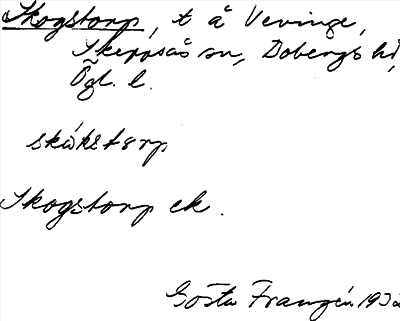 Skogstorp, t å Vevinge,
Skeppsås sn, Dobergs hd,
Ögl. l.
skåkstorp
Skogstorp ek.
Gösta Franzén 1932